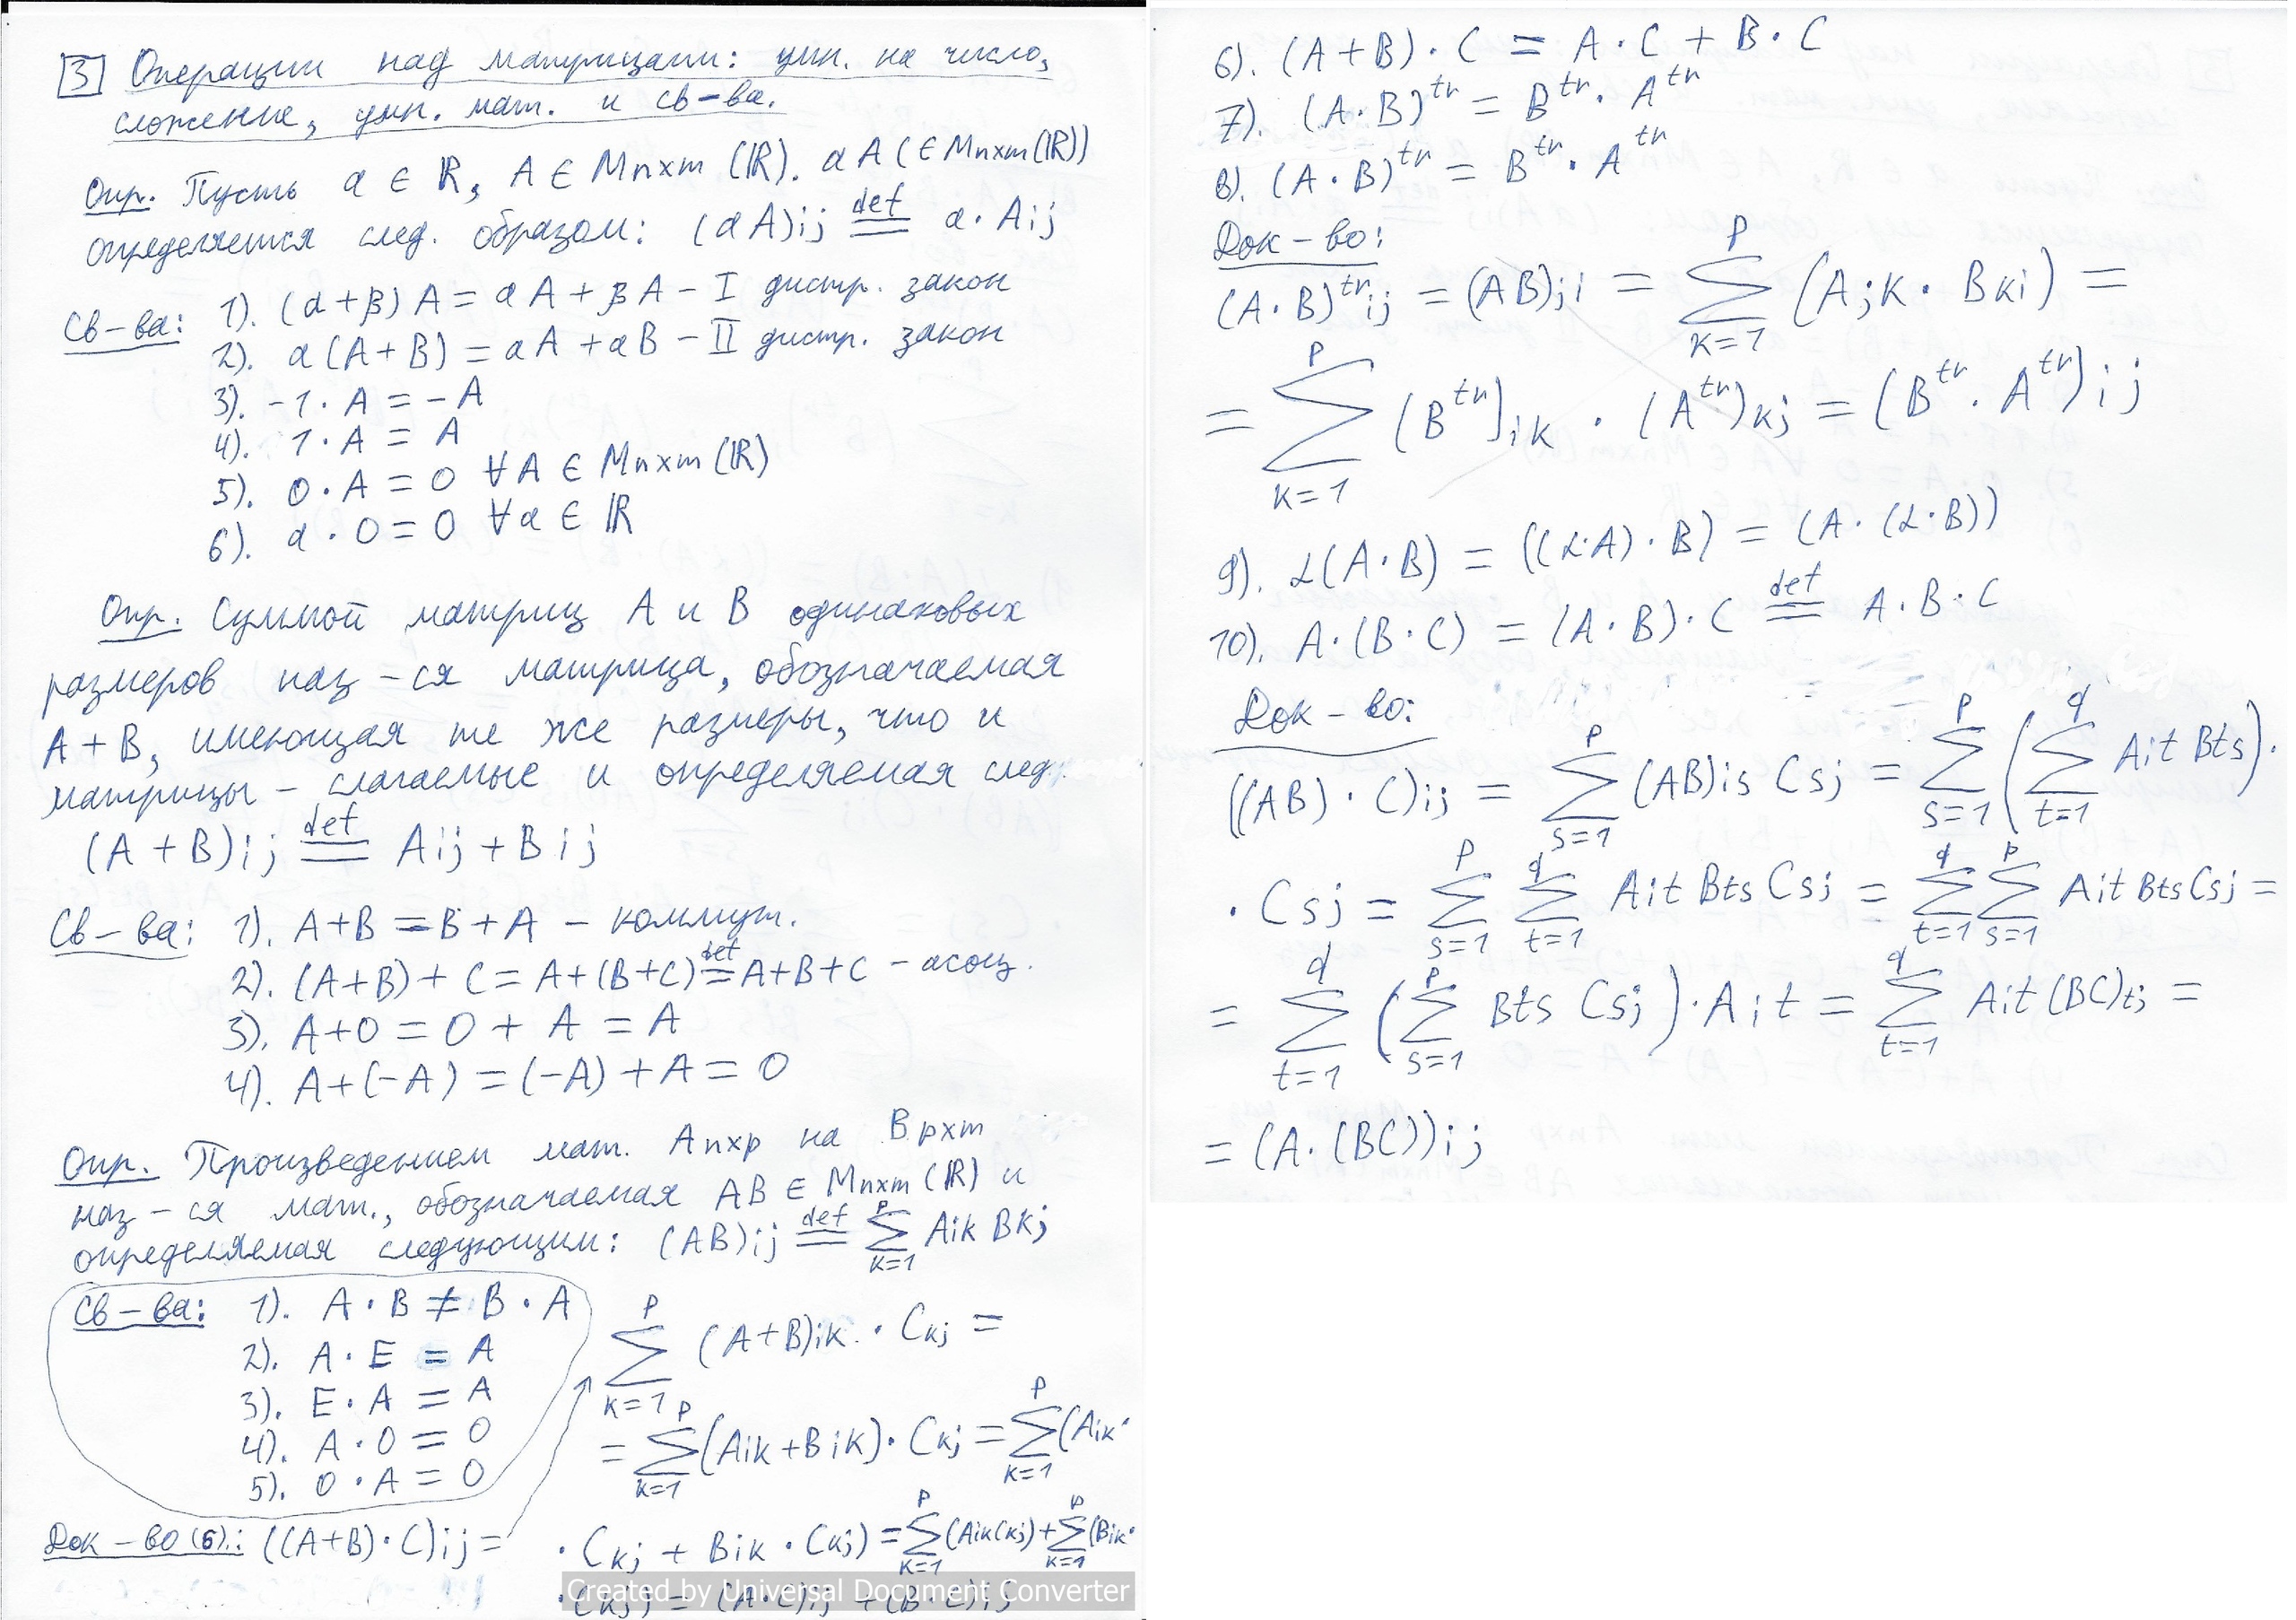 3 Операции над матрицами: умн. на число,
сложение, умн. мат. и св-ва.
Опр. Пусть α ∈ ℝ, A ∈ Mn×m (ℝ). αA (∈ Mn×m(ℝ))
определяется след. образом: (αA)ij def= α·Aij
Св-ва: 1). (α+β)A = αA + βA – I дистр. закон
2). α(A+B) = αA + αB – II дистр. закон
3). -1·A = -A
4). 1·A = A
5). 0·A = 0 ∀A ∈ Mn×m (ℝ)
6). α·0 = 0 ∀α ∈ ℝ
Опр. Суммой матриц A и B одинаковых
размеров наз-ся матрица, обозначаемая
A+B, имеющая те же размеры, что и
матрицы – слагаемые и определяемая след.
(A+B)ij def= Aij + Bij
Св-ва: 1). A+B = B+A – коммут.
2). (A+B)+C = A+(B+C) def= A+B+C – асоц.
3). A+0 = 0+A = A
4). A+(-A) = (-A)+A = 0
Опр. Произведением мат. An×p на Bp×m
наз-ся мат., обозначаемая AB ∈ Mn×m (ℝ) и
определяемая следующим: (AB)ij def= ∑ p k=1 Aik Bkj
Св-ва: 1). A·B ≠ B·A
2). A·E = A
3). E·A = A
4). A·0 = 0
5). 0·A = 0
Док-во (6).: ((A+B)·C)ij =
∑ p k=1 (A+B)ik · Ckj =
= ∑ p k=1 (Aik+Bik)·Ckj = ∑ p k=1 (Aik·
·Ckj + Bik·Ckj) = ∑ p k=1 (AikCkj) + ∑ p k=1 (Bik·
·Ckj) = (A·C)ij + (B·C)ij
Created by Universal Document Converter
6). (A+B)·C = A·C + B·C
7). (A·B)tr = Btr·Atr
8). (A·B)tr = Btr·Atr
Док-во:
(A·B)trij = (AB)ji = ∑ p k=1 (Ajk·Bki) =
= ∑ p k=1 (Btr)ik · (Atr)kj = (Btr·Atr)ij
9). α(A·B) = ((α·A)·B) = (A·(α·B))
10). A·(B·C) = (A·B)·C def= A·B·C
Док-во:
((AB)·C)ij = ∑ p s=1 (AB)is Csj = ∑ p s=1 (∑ q t=1 Ait Bts)·
·Csj = ∑ p s=1 ∑ q t=1 Ait Bts Csj = ∑ q t=1 ∑ p s=1 Ait Bts Csj =
= ∑ q t=1 (∑ p s=1 Bts Csj)·Ait = ∑ q t=1 Ait (BC)tj =
= (A·(BC))ij